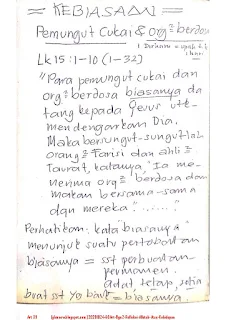 = KEBIASAAN =
Pemungut Cukai & org² berdosa
1 Dirham = upah
Lk 15 : 1-10 (1-32)
"Para pemungut cukai dan
org² berdosa biasanya da
tang kepada Yesus utk
mendengarkan Dia.
Maka bersungut-sungutlah
orang² Farisi dan ahli²
Taurat, katanya, "Ia me-
nerima org² berdosa dan
makan bersama-sama
dgn mereka. "....."
Perhatikan, kata biasanya
menunjuk suatu
biasanya = sst perbuatan
permanen.
adat tetap, setia
buat sst yg = biasanya.